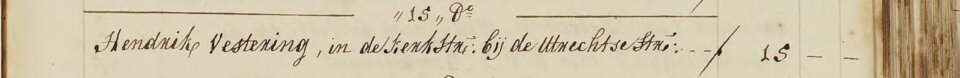 „ 15 „ Do
Hendrik Vestering, in de Kerk Str: bij de Utrechtse Str: --- / 15 — —